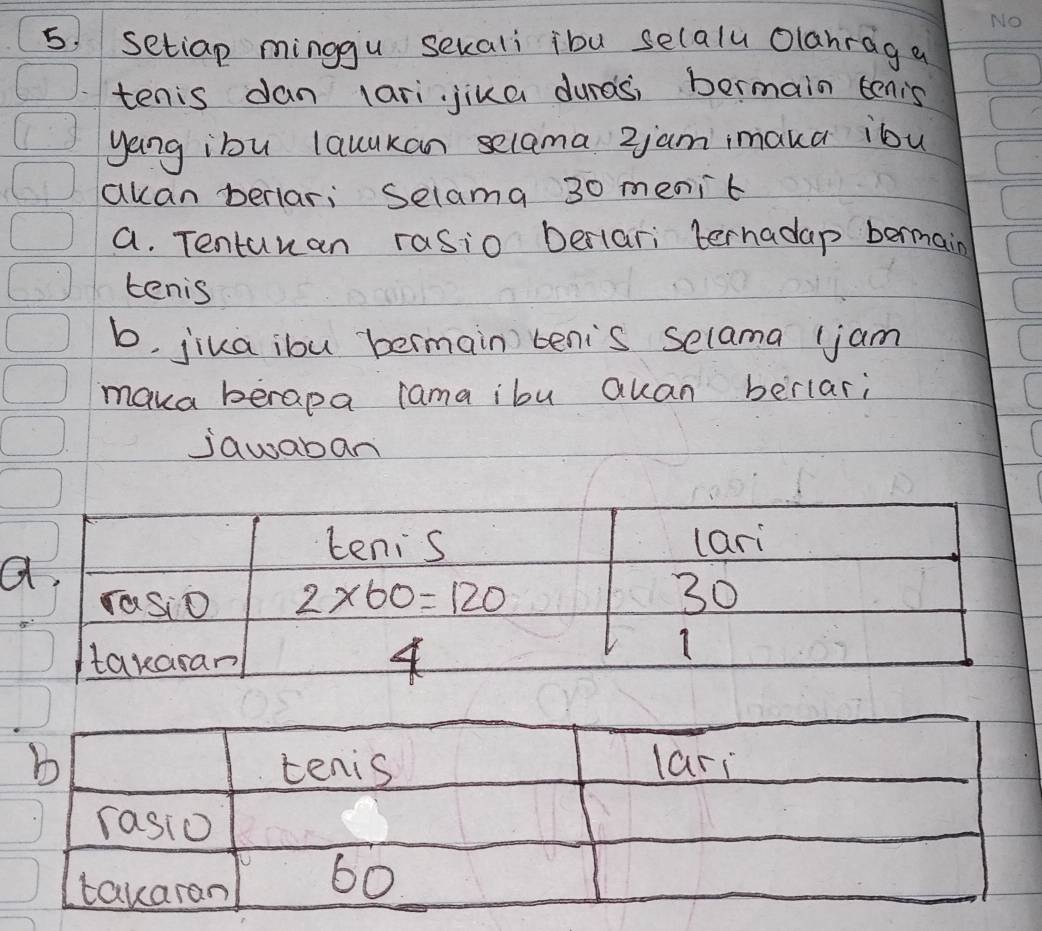 NO
5. Setiap minggu sekali ibu selalu Olahraga
tenis dan lari. jika durasi bermain tenis
yang ibu lakukan selama 2jam, maka ibu
akan berlari selama 30 menit
a. Tentukan rasio berlari terhadap bermain
tenis
b. jika ibu bermain tenis selama 1jam
maka berapa lama ibu akan berlari
jawaban
a. tenis lari
rasio 2×60=120 30
takaran 4 1
b tenis lari
rasio
takaran 60